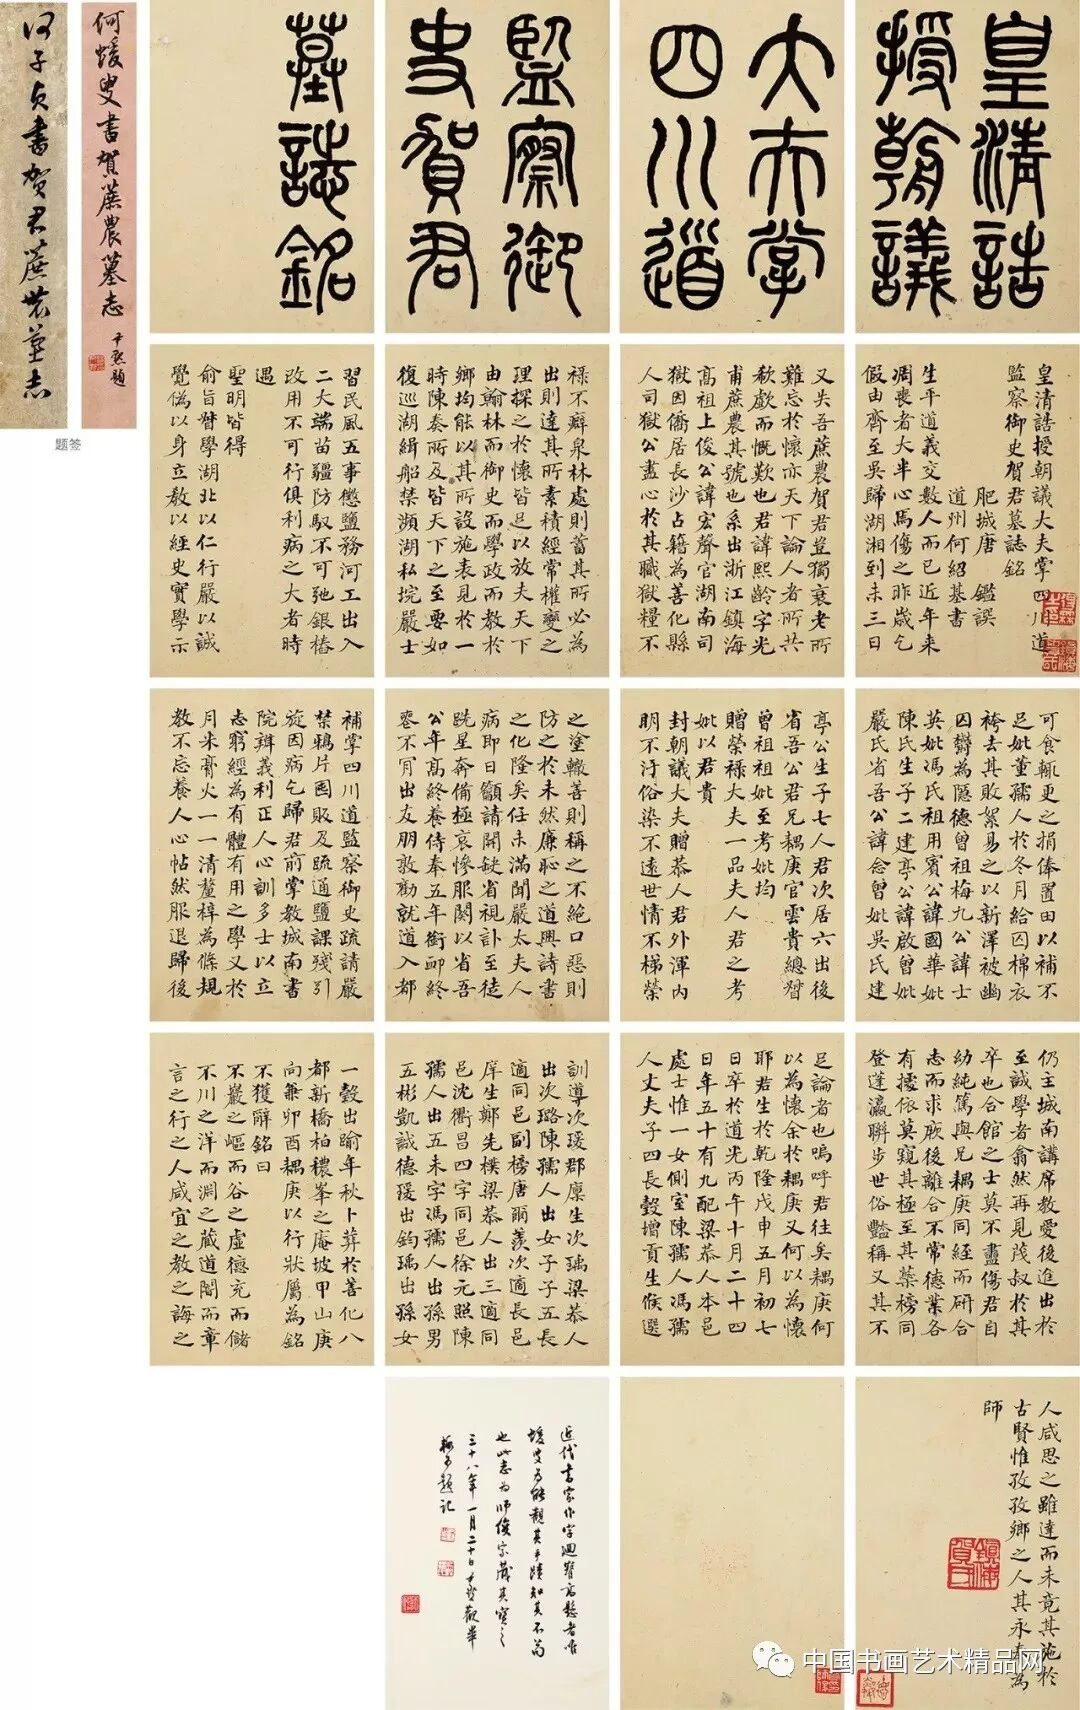 何子貞書賀君蔗農墓志
何蝯叟書賀蔗農墓志
題签
皇清誥
授朝議
大夫掌
四川道
監察御
史賀君
墓誌銘
皇清誥授朝議大夫掌四川道
監察御史賀君墓誌銘
肥城唐鑑譔
道州何紹基書
生平道義交數人而已近年来
凋喪者大半心焉傷之昨歲乞
假由齊至吳歸湖湘到未三日
又失吾蔗農賀君豈獨衰老所
難忘於懷亦天下論人者所共
欷歔而慨歎也君諱熙齡字光
甫蔗農其號也系出浙江鎮海
高祖上俊公諱宏聲官湖南司
獄因僑居長沙占籍為善化縣
人司獄公盡心於其職獄糧不
禄不癖泉林處則蓄其所必為
出則達其所素積經常權變之
理探之於懷皆足以放夫天下
由翰林而御史而學政而教於
鄉均能以其所設施表見於一
時陳奏所及皆天下之至要如
復巡湖緝船禁瀕湖私垸嚴士
習民風五事懲鹽務河工出入
二大端苗疆防馭不可弛銀樁
改用不可行俱利病之大者時
遇
聖明皆得
俞旨督學湖北以仁行嚴以誠
覺偽以身立教以經史實學示
可食輒更之捐俸置田以補不
足妣董孺人於冬月給囚棉衣
袴去其敗絮易之以新澤被幽
囚鬱為隱德曾祖梅九公諱士
英妣馮氏祖用賓公諱國華妣
陳氏生子二建亭公諱啟曾妣
嚴氏省吾公諱念曾妣吳氏建
亭公生子七人君次居六出後
省吾公君兄耦庚官雲貴總督
曾祖祖妣至考妣均
贈榮禄大夫一品夫人君之考
妣以君貴
封朝議大夫贈恭人君外渾内
明不汙俗染不遠世情不梯榮
之塗轍善則稱之不絕口惡則
防之於未然廉恥之道興詩書
之化隆矣任未滿聞嚴太夫人
病即日籲請開缺省視訃至徒
跣星奔備極哀慘服闋以省吾
公年高終養侍奉五年銜卹終
喪不肎出友朋敦勸就道入都
補掌四川道監察御史疏請嚴
禁鴉片囤販及疏通鹽課殘引
旋因病乞歸君前掌教城南書
院辨義利正人心訓多士以立
志窮經為有體有用之學又於
月米膏火一一清釐梓為條規
教不忘養人心帖然服退歸後
仍主城南講席教愛後進出於
至誠學者翕然再見茂叔於其
卒也合館之士莫不盡傷君自
幼純篤與兄耦庚同經而研合
志而求厥後離合不常德業各
有擅依莫窺其極至其蘂榜同
登蓬瀛聯步世俗豔稱又其不
足論者也嗚呼君往矣耦庚何
以為懷余於耦庚又何以為懷
耶君生於乾隆戊申五月初七
日卒於道光丙午十月二十四
日年五十有九配梁恭人本邑
處士惟一女側室陳孺人馮孺
人丈夫子四長瑴增貢生候選
訓導次瑗郡廩生次瑀梁恭人
出次璐陳孺人出女子子五長
適同邑副榜唐爾羨次適長邑
庠生鄭先樸梁恭人出三適同
邑沈衢昌四字同邑徐元照陳
孺人出五未字馮孺人出孫男
五彬凱誠德瑗出鈞瑀出孫女
一瑴出踰年秋卜葬於善化八
都新橋柏穠峯之庵坡甲山庚
向兼卯酉耦庚以行狀屬為銘
不獲辭銘曰
不巖之嶇而谷之虛德充而儲
不川之洋而淵之藏道闇而章
言之行之人咸宜之教之誨之
人咸思之雖達而未竟其施於
古賢惟孜孜鄉之人其永奉為
師
近代書家作字迴腕高懸者唯
蝯叟為能觀其手蹟知其不茍
也此志為師俊宗藏其寶之
三十八年一月二十日
題記
中国书画艺术精品网